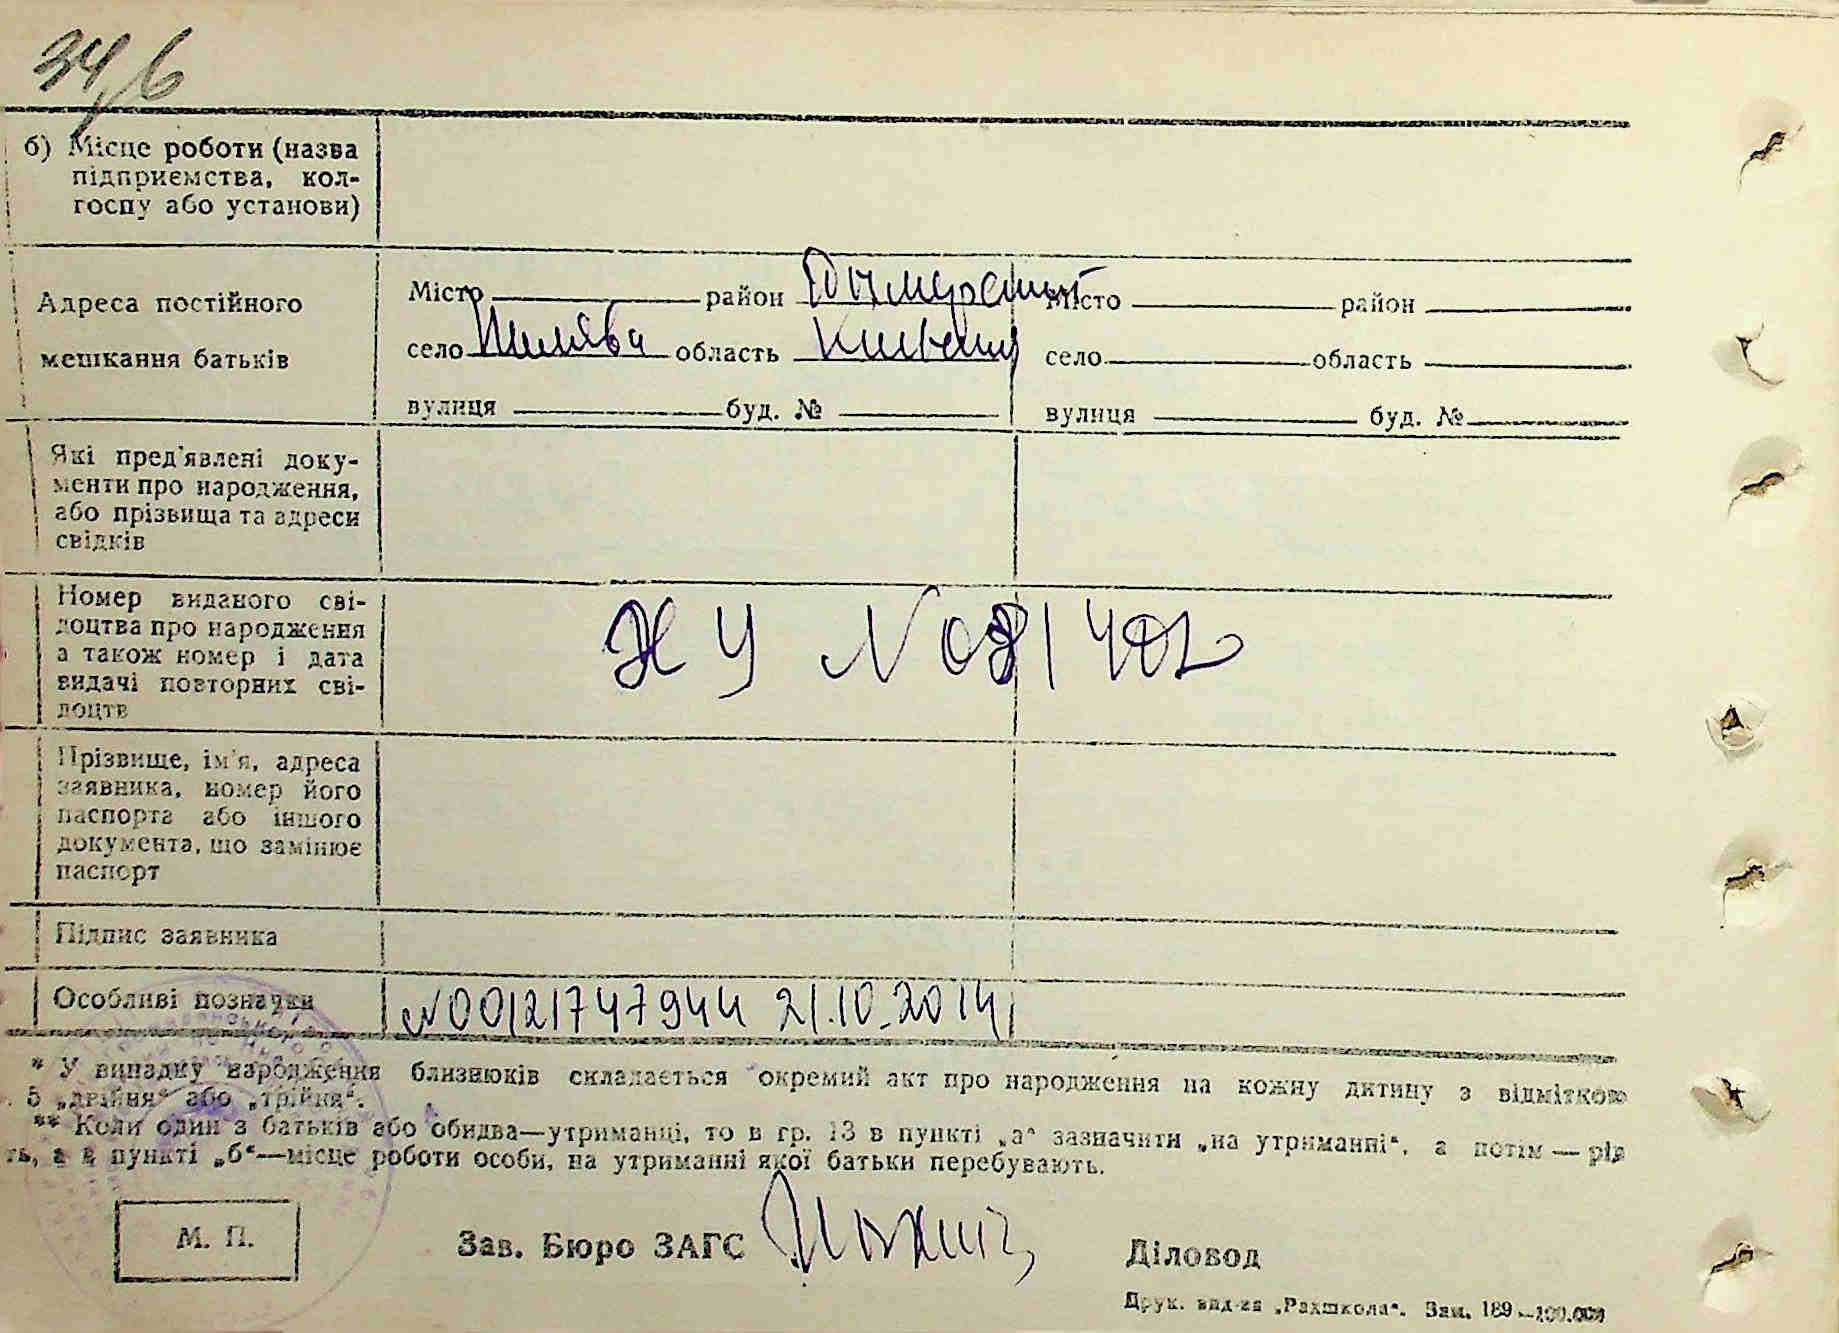 34/6
б) Місце роботи (назва
підприємства, кол-
госпу або установи)
Адреса постійного
мешкання батьків
Місто район Димерський Місто район
село область Київська село область
вулиця буд. № вулиця буд. №
Які пред'явлені доку-
менти про народження,
або прізвища та адреси
свідків
Номер виданого сві-
доцтва про народження
а також номер і дата
видачі повторних сві-
доцтв
ЖУ N 081402
Прізвище, ім'я, адреса
заявника, номер його
паспорта або іншого
документа, що замінює
паспорт
Підпис заявника
Особливі позначки N00121747944 21.10.2014
* У випадку народження близнюків складається окремий акт про народження на кожну дитину з відміткою
. 5 „двійня“ або „трійня“.
** Коли один з батьків або обидва—утриманці, то в гр. 13 в пункті „а“ зазначити „на утриманні“, а потім — рід
ть, а в пункті „б“—місце роботи особи, на утриманні якої батьки перебувають.
М. П.
Зав. Бюро ЗАГС
Діловод
Друк. вид-ва „Рахшкола“. Зам. 189—100.000